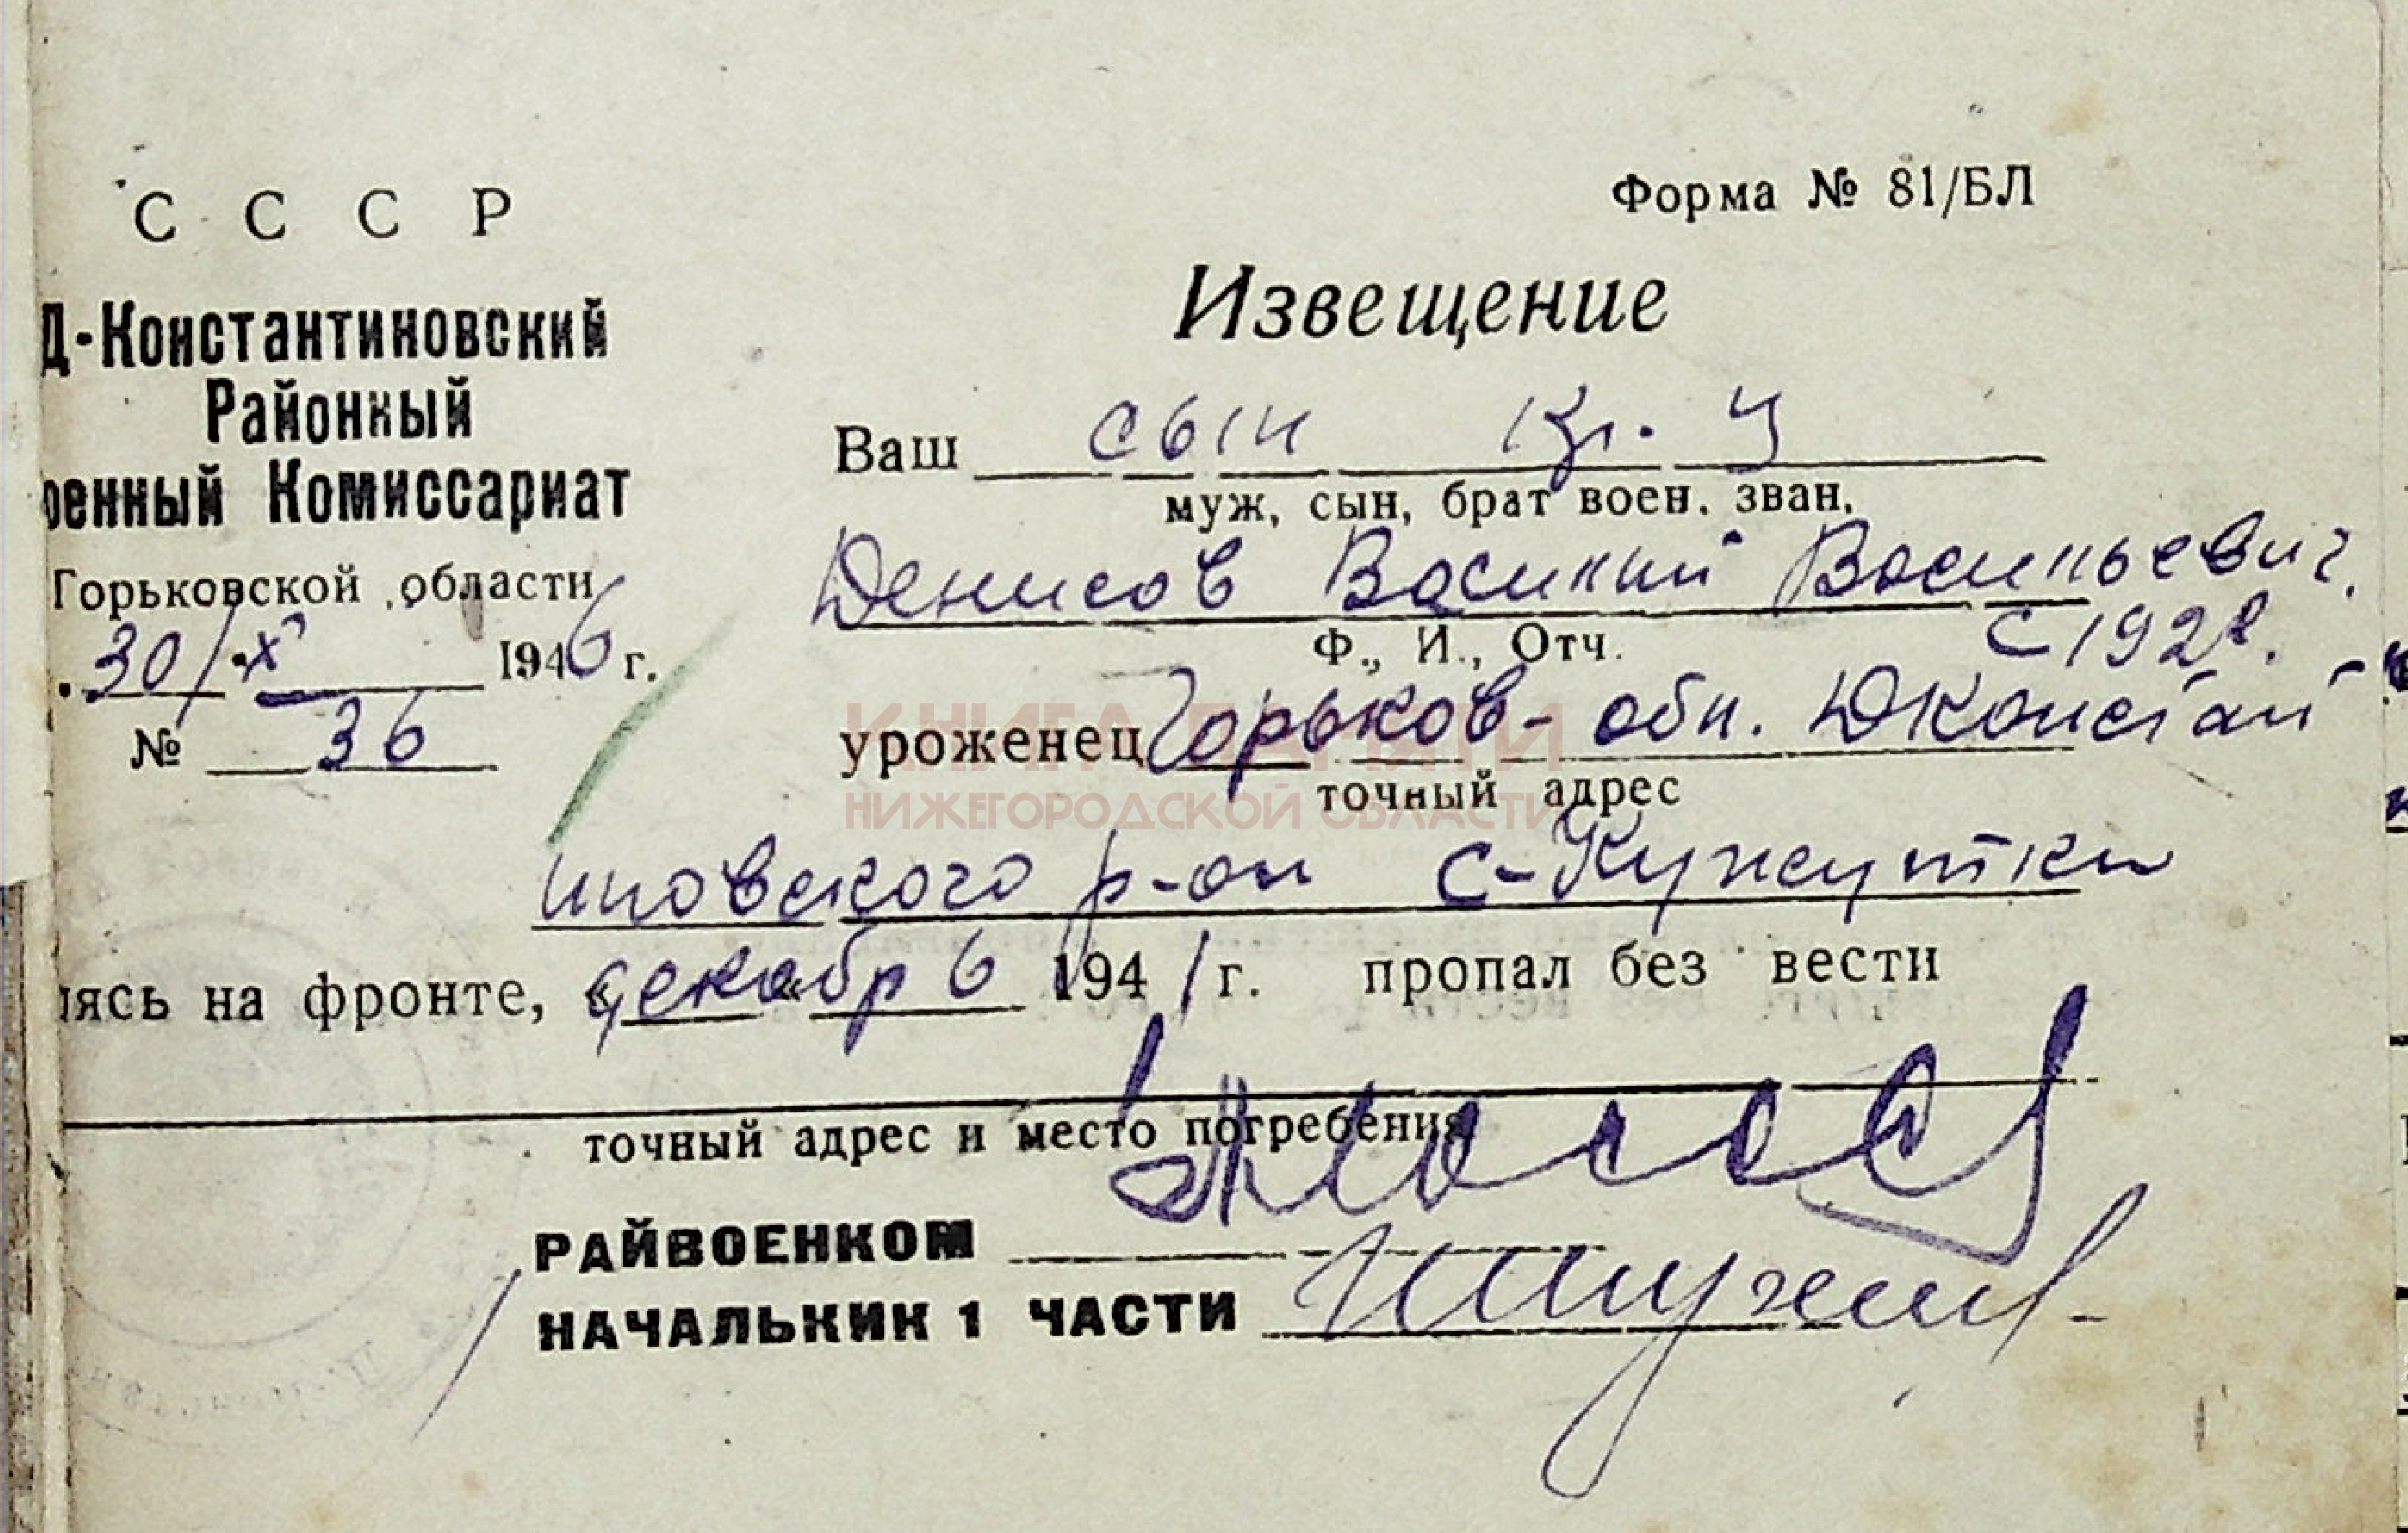 СССР
Форма № 81/БЛ
Д-Константиновский
Районный
оенный Комиссариат
Горьковской области
30/X 1946 г.
№ 36
Извещение
Ваш сын кр-ц
муж, сын, брат воен. зван.
Денисов Василий Васильевич
Ф., И., Отч.
с 192
уроженец Горьков- обл. Дконстан-
точный адрес
КНИГА ПАМЯТИ
НИЖЕГОРОДСКОЙ ОБЛАСТИ
иновского р-он с-Кужутки
ясь на фронте, « декабрь 1941 г. пропал без вести
точный адрес и место погребения
РАЙВОЕНКОМ
НАЧАЛЬНИК 1 ЧАСТИ